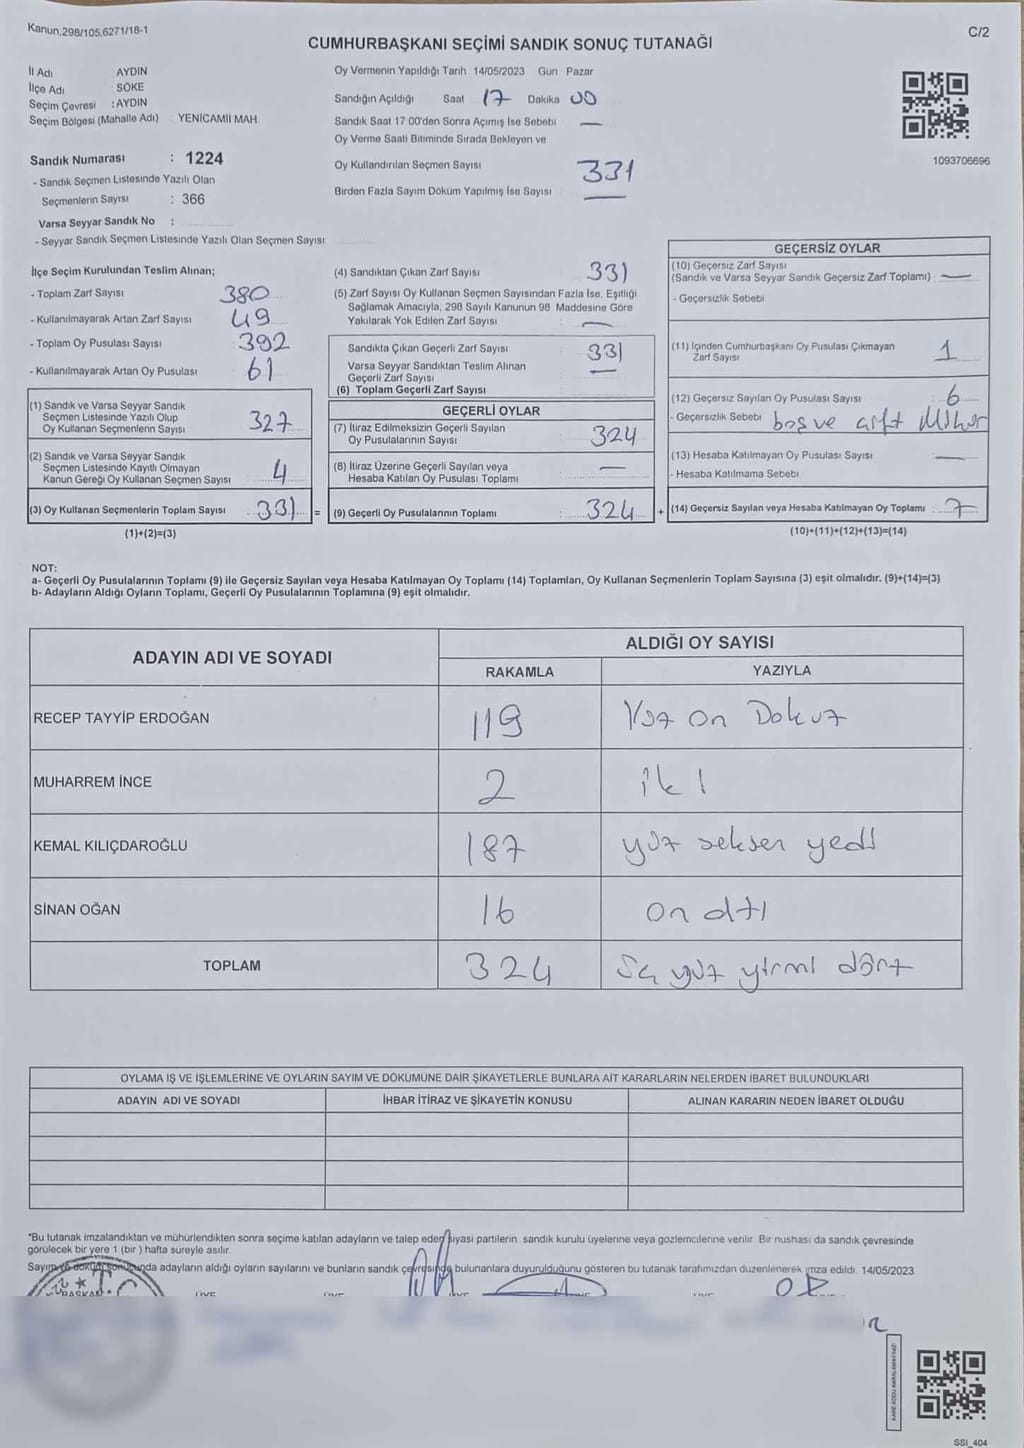 Kanun,298/105,6271/18-1
C/2
CUMHURBAŞKANI SEÇİMİ SANDIK SONUÇ TUTANAĞI
İl Adı : AYDIN
İlçe Adı : SÖKE
Seçim Çevresi : AYDIN
Seçim Bölgesi (Mahalle Adı) : YENİCAMİİ MAH.
Sandık Numarası : 1224
- Sandık Seçmen Listesinde Yazılı Olan
Seçmenlerin Sayısı : 366
Varsa Seyyar Sandık No :
- Seyyar Sandık Seçmen Listesinde Yazılı Olan Seçmen Sayısı:
Oy Vermenin Yapıldığı Tarih 14/05/2023 Gün Pazar
Sandığın Açıldığı Saat 17 Dakika 00
Sandık Saat 17 00'den Sonra Açımış İse Sebebi —
Oy Verme Saati Bitiminde Sırada Bekleyen ve
Oy Kullandırılan Seçmen Sayısı 331
Birden Fazla Sayım Döküm Yapılmış İse Sayısı —
1093706696
İlçe Seçim Kurulundan Teslim Alınan;
- Toplam Zarf Sayısı 380
- Kullanılmayarak Artan Zarf Sayısı 49
- Toplam Oy Pusulası Sayısı : 392
- Kullanılmayarak Artan Oy Pusulası 61
(1) Sandık ve Varsa Seyyar Sandık
Seçmen Listesinde Yazılı Olup
Oy Kullanan Seçmenlerin Sayısı 327
(2) Sandık ve Varsa Seyyar Sandık
Seçmen Listesinde Kayıtlı Olmayan
Kanun Gereği Oy Kullanan Seçmen Sayısı 4
(3) Oy Kullanan Seçmenlerin Toplam Sayısı 331 =
(1)+(2)=(3)
(4) Sandıktan Çıkan Zarf Sayısı 331
(5) Zarf Sayısı Oy Kullanan Seçmen Sayısından Fazla İse, Eşitliği
Sağlamak Amacıyla, 298 Sayılı Kanunun 98 Maddesine Göre
Yakılarak Yok Edilen Zarf Sayısı —
Sandıkta Çıkan Geçerli Zarf Sayısı 331
Varsa Seyyar Sandıktan Teslim Alınan
Geçerli Zarf Sayısı —
(6) Toplam Geçerli Zarf Sayısı
GEÇERLİ OYLAR
(7) İtiraz Edilmeksizin Geçerli Sayılan
Oy Pusulalarının Sayısı 324
(8) İtiraz Üzerine Geçerli Sayılan veya
Hesaba Katılan Oy Pusulası Toplamı —
(9) Geçerli Oy Pusulalarının Toplamı : 324 +
GEÇERSİZ OYLAR
(10) Geçersiz Zarf Sayısı
(Sandık ve Varsa Seyyar Sandık Geçersiz Zarf Toplamı) : —
- Geçersizlik Sebebi
(11) İçinden Cumhurbaşkanı Oy Pusulası Çıkmayan
Zarf Sayısı 1
(12) Geçersiz Sayılan Oy Pusulası Sayısı 6
- Geçersizlik Sebebi boş ve çift Mühür
(13) Hesaba Katılmayan Oy Pusulası Sayısı —
- Hesaba Katılmama Sebebi
(14) Geçersiz Sayılan veya Hesaba Katılmayan Oy Toplamı : 7
(10)+(11)+(12)+(13)=(14)
NOT:
a- Geçerli Oy Pusulalarının Toplamı (9) ile Geçersiz Sayılan veya Hesaba Katılmayan Oy Toplamı (14) Toplamları, Oy Kullanan Seçmenlerin Toplam Sayısına (3) eşit olmalıdır. (9)+(14)=(3)
b- Adayların Aldığı Oyların Toplamı, Geçerli Oy Pusulalarının Toplamına (9) eşit olmalıdır.
ADAYIN ADI VE SOYADI
ALDIĞI OY SAYISI
RAKAMLA YAZIYLA
RECEP TAYYİP ERDOĞAN 119 Yüz on Dokuz
MUHARREM İNCE 2 iki
KEMAL KILIÇDAROĞLU 187 yüz seksen yedi
SİNAN OĞAN 16 on altı
TOPLAM 324 üç yüz yirmi dört
OYLAMA İŞ VE İŞLEMLERİNE VE OYLARIN SAYIM VE DÖKÜMÜNE DAİR ŞİKAYETLERLE BUNLARA AİT KARARLARIN NELERDEN İBARET BULUNDUKLARI
ADAYIN ADI VE SOYADI İHBAR İTİRAZ VE ŞİKAYETİN KONUSU ALINAN KARARIN NEDEN İBARET OLDUĞU
*Bu tutanak imzalandıktan ve mühürlendikten sonra seçime katılan adayların ve talep eden siyasi partilerin sandık kurulu üyelerine veya gözlemcilerine verilir. Bir nushası da sandık çevresinde
görülecek bir yere 1 (bir ) hafta süreyle asılır.
Sayım ve döküm sonucunda adayların aldığı oyların sayılarını ve bunların sandık çevresinde bulunanlara duyurulduğunu gösteren bu tutanak tarafımızdan düzenlenerek imza edildi. 14/05/2023
T.C
BAŞKAN
KARE KODU KARALAMAYINIZ!
SSI_404